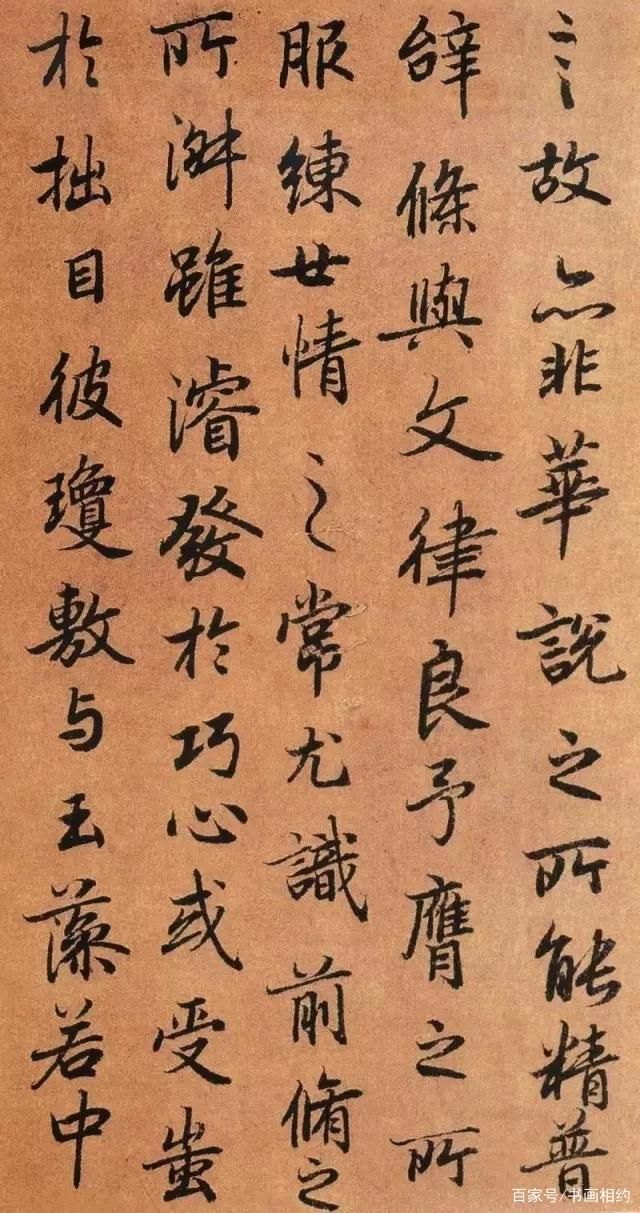 之故亦非華說之所能精普
辭條與文律良予膺之所
服練世情之常尤識前脩之
所淋雖濬發於巧心或受蚩
於拙目彼瓊敷与玉藻若中
百家号/书画相约